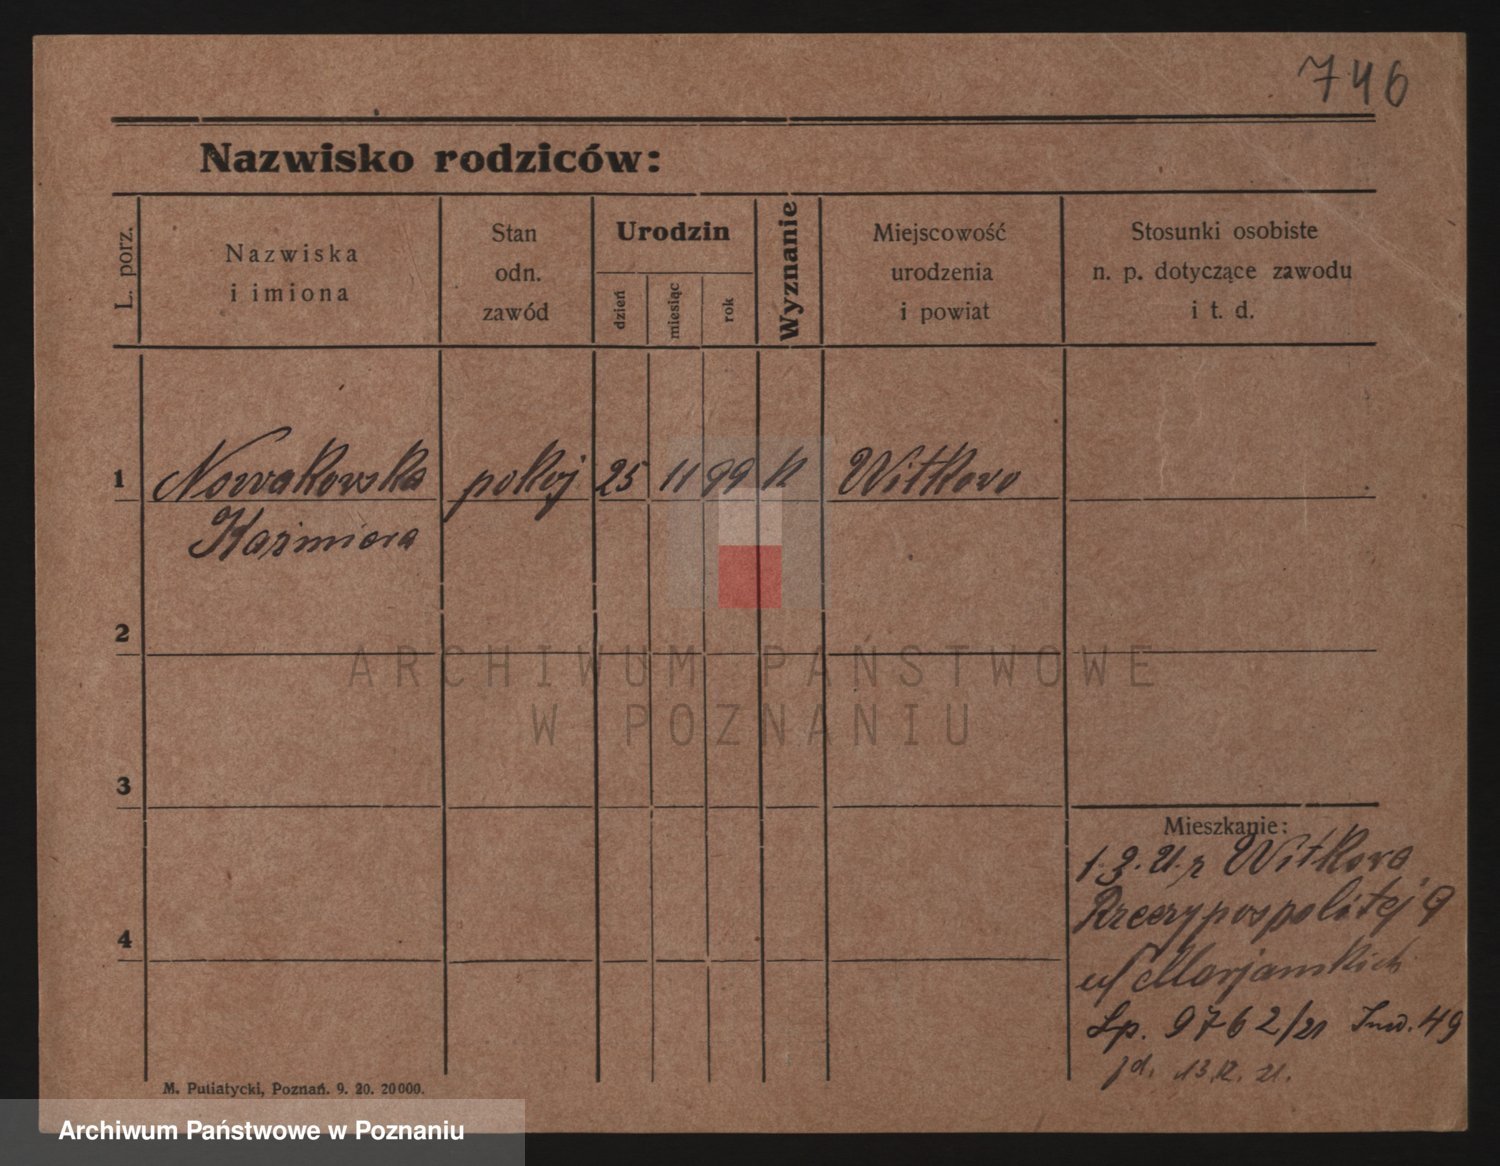 746
Nazwisko rodziców:
L. porz.
Nazwiska
i imiona
Stan
odn.
zawód
Urodzin
dzień
miesiąc
rok
Wyznanie
Miejscowość
urodzenia
i powiat
Stosunki osobiste
n. p. dotyczące zawodu
i t. d.
1 Nowakowska pokoj 25 11 99 k Witkowo
Kazimiera
2
ARCHIWUM PAŃSTWOWE
W POZNANIU
3
Mieszkanie:
1.3.21 z Witkowa
Rzeczypospolitej 9
4
u/
Lp. 9762/21 Inw. 49
13.12.21.
M. Putiatycki, Poznań. 9. 20. 20000.
Archiwum Państwowe w Poznaniu